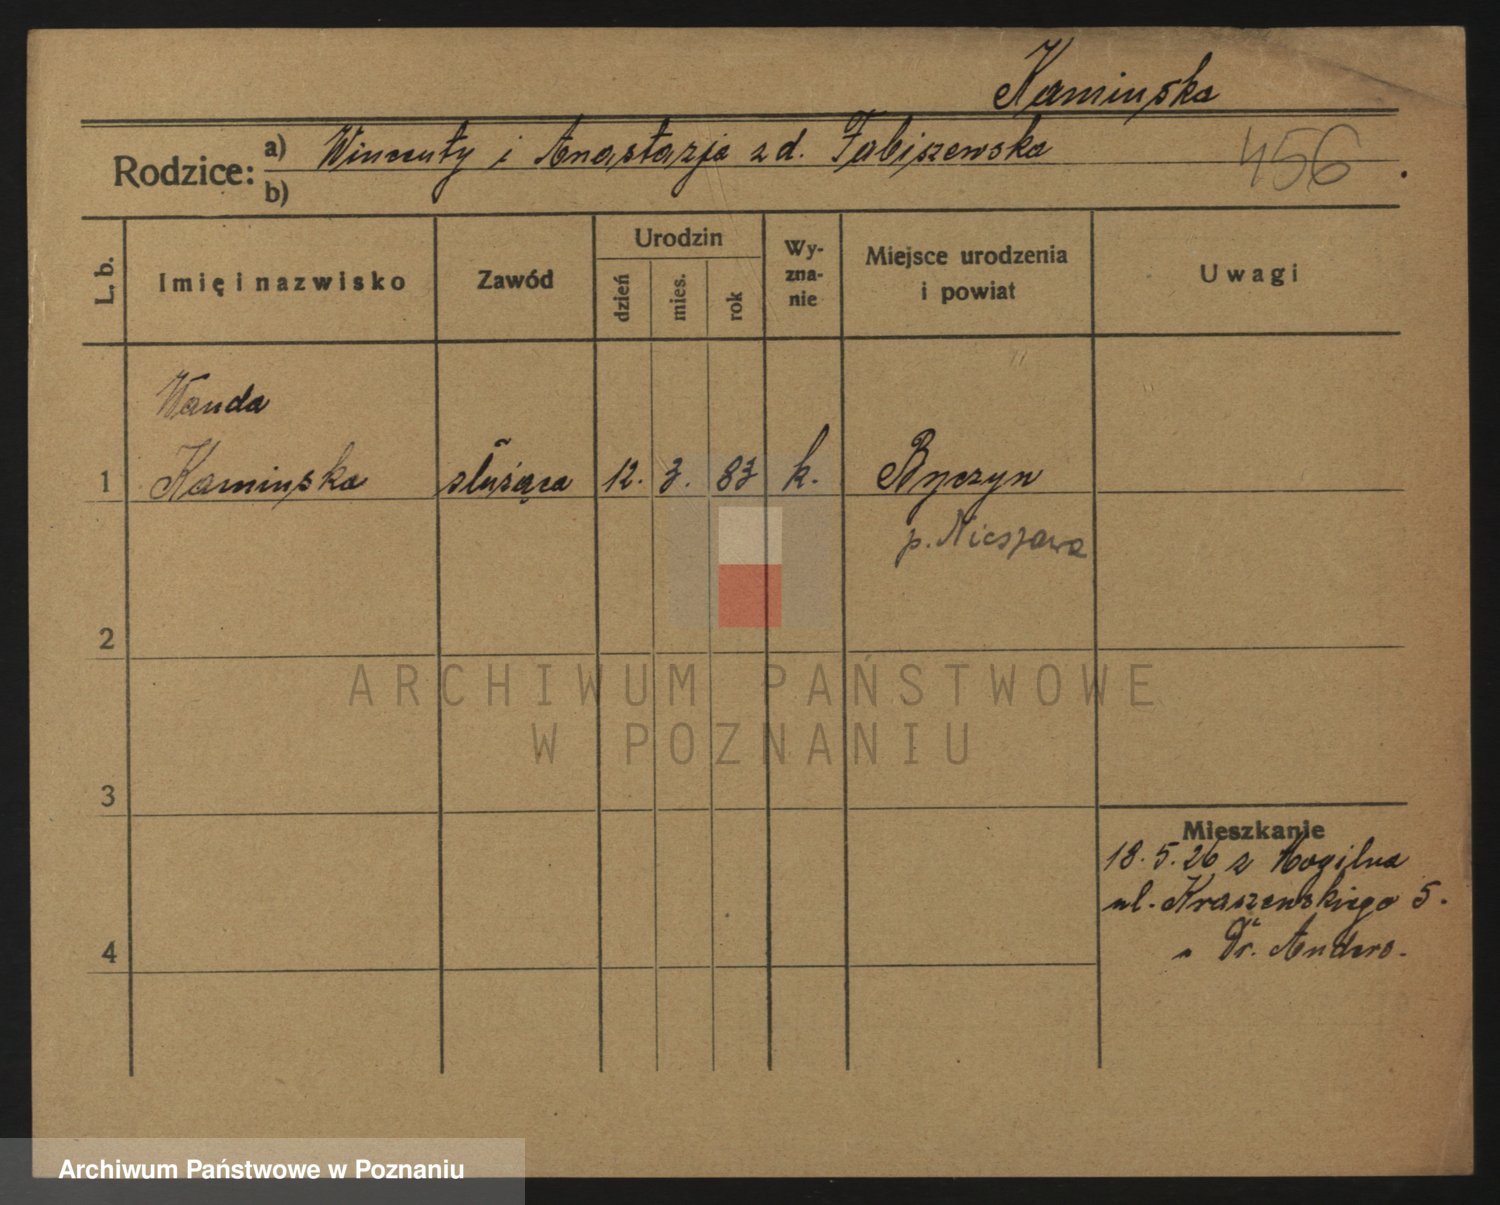 Kaminska
Rodzice:
a) Wincenty i Anastazja z d. Fabiszewska
b)
456
L. b.
Imię i nazwisko
Zawód
Urodzin
dzień
mies.
rok
Wy-
zna-
nie
Miejsce urodzenia
i powiat
Uwagi
Wanda
1 Kaminska służąca 12. 3. 83 k. Byczyn
p. Nieszawa
2
ARCHIWUM PAŃSTWOWE
W POZNANIU
3
Mieszkanie
18.5.26 z Mogilna
ul. Kraszewskiego 5.
Dr. Anders.
4
Archiwum Państwowe w Poznaniu